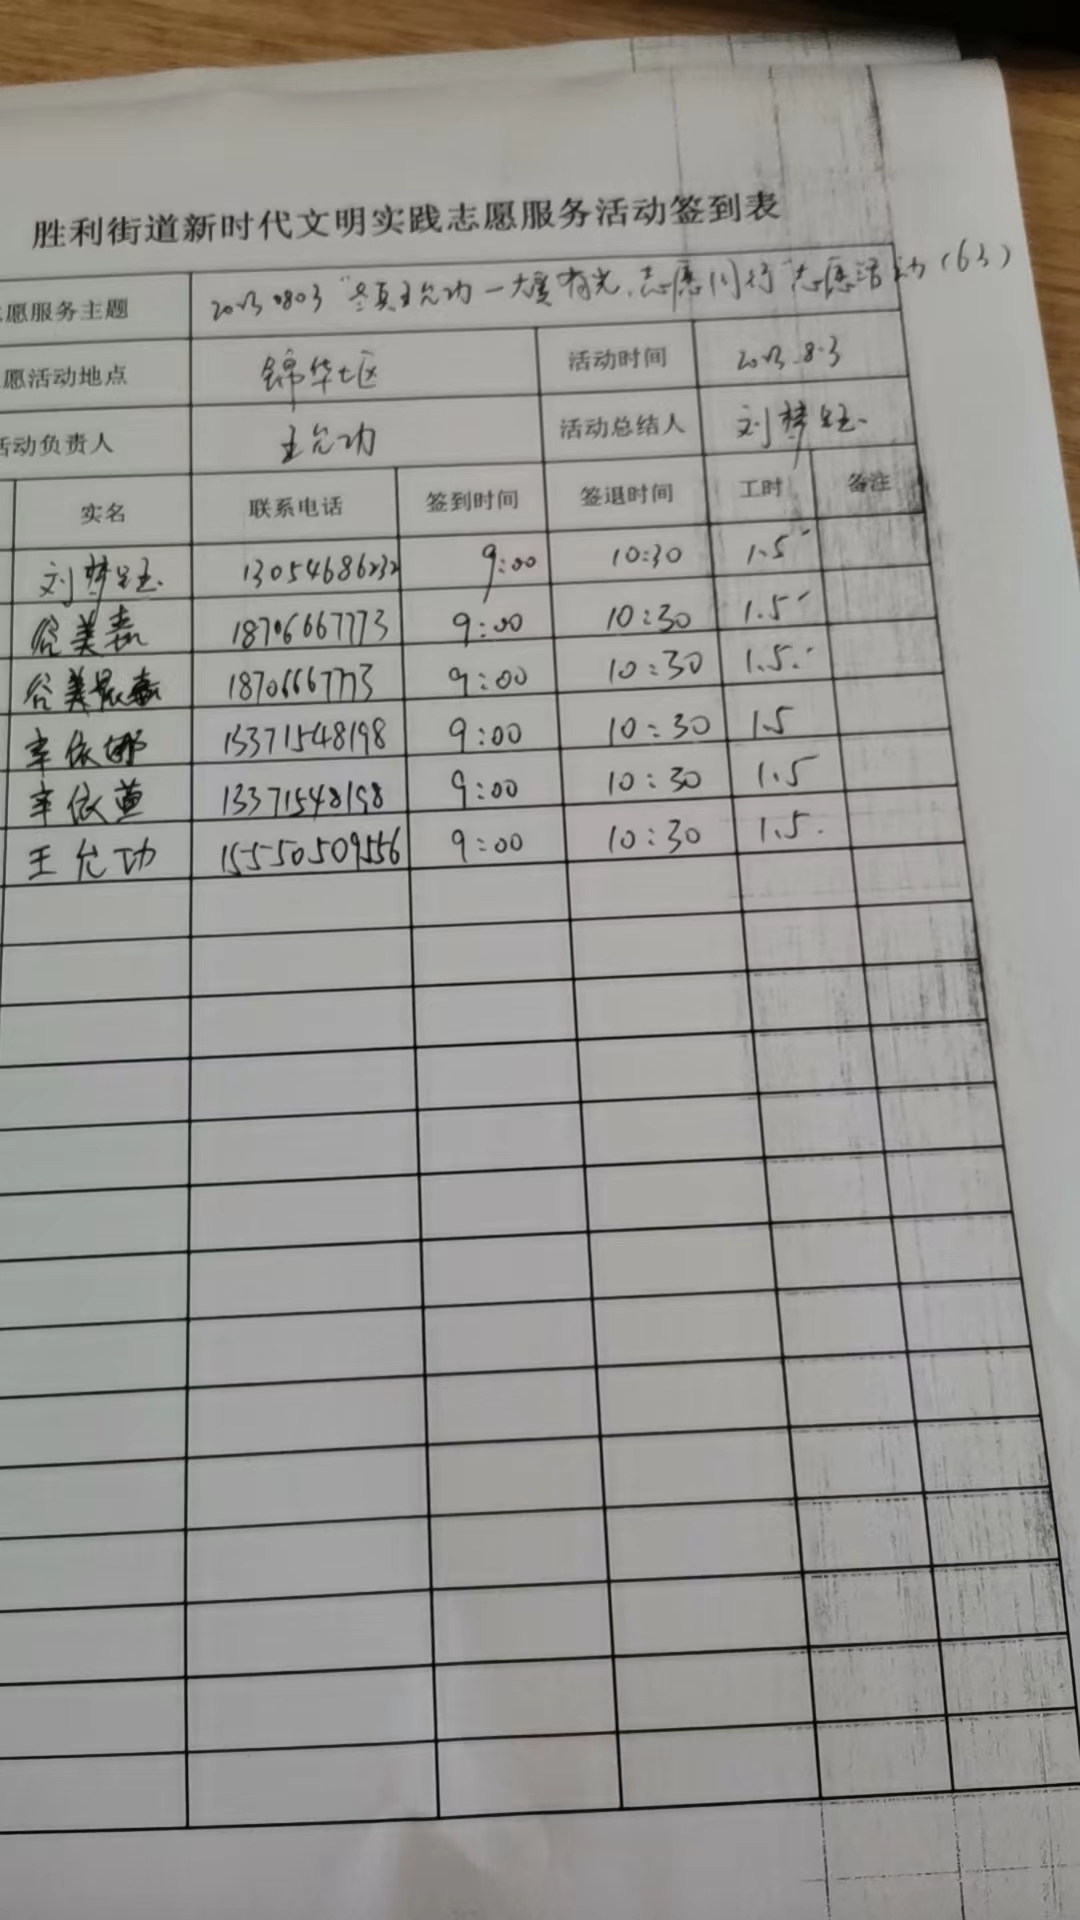 胜利街道新时代文明实践志愿服务活动签到表
愿服务主题 20230803 “ 王允功 一 有光、志愿同行”志愿活动(63)
愿活动地点 锦华七区 活动时间 2023.8.3
活动负责人 王允功 活动总结人 刘梦钰
实名 联系电话 签到时间 签退时间 工时 备注
刘梦钰 13054686232 9:00 10:30 1.5
谷美嘉 18706667773 9:00 10:30 1.5
谷美 18706667773 9:00 10:30 1.5
辛依娜 13371548198 9:00 10:30 1.5
辛依萱 13371548198 9:00 10:30 1.5
王允功 15550509556 9:00 10:30 1.5